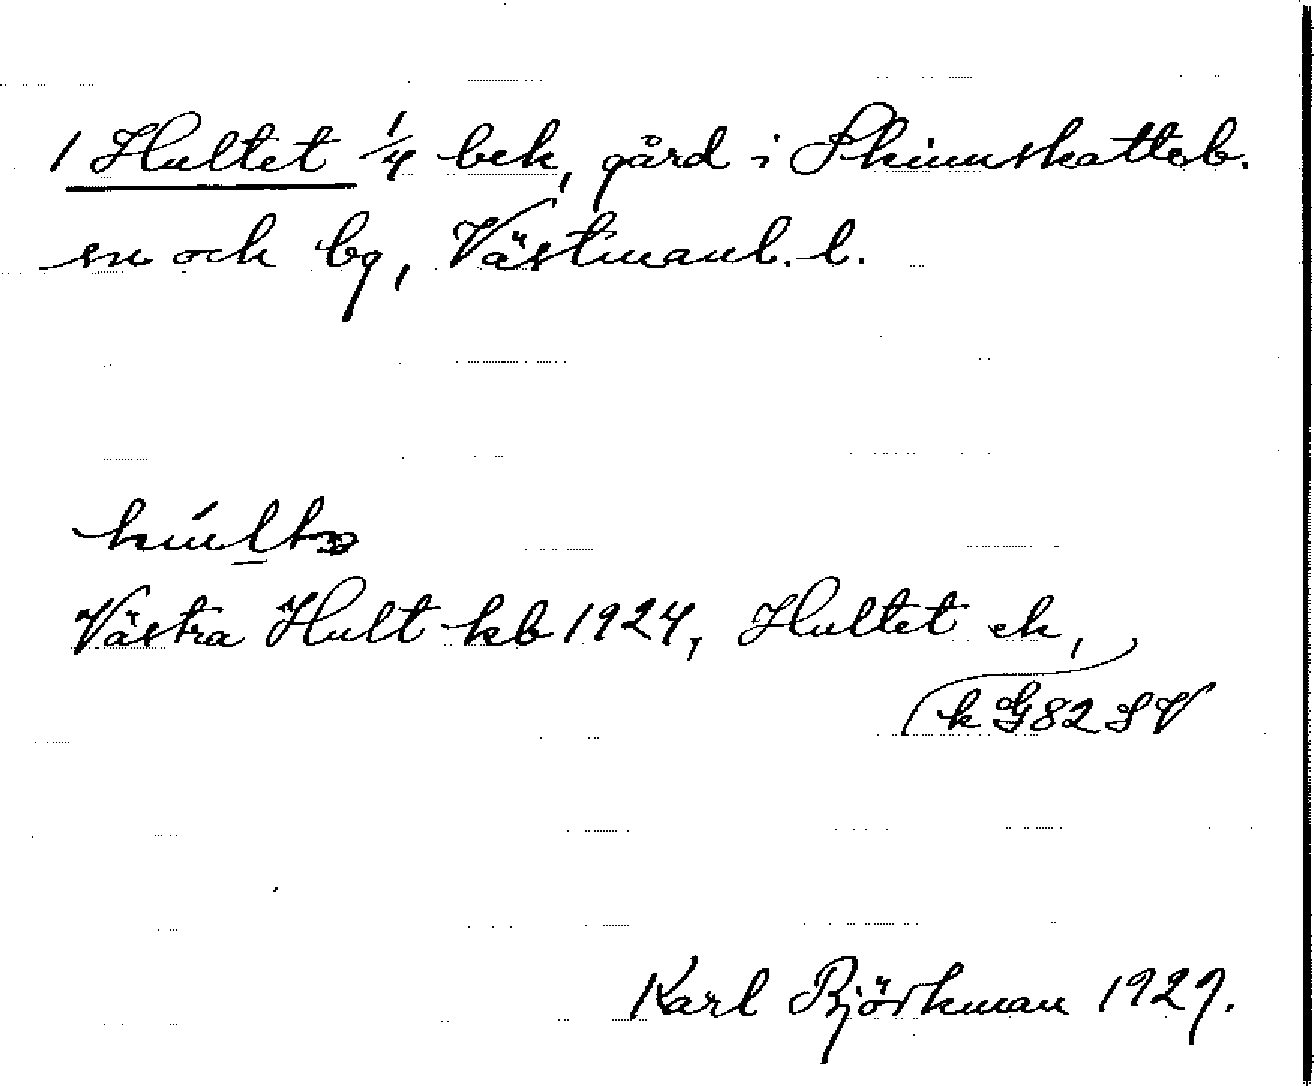 1 Hultet 1/4 bek, gård i Skinnskatteb.
sn och bg, Västmanl. l.
Västra Hult kb 1924, Hultet ek,
k G82 SV
Karl Björkman 1929.